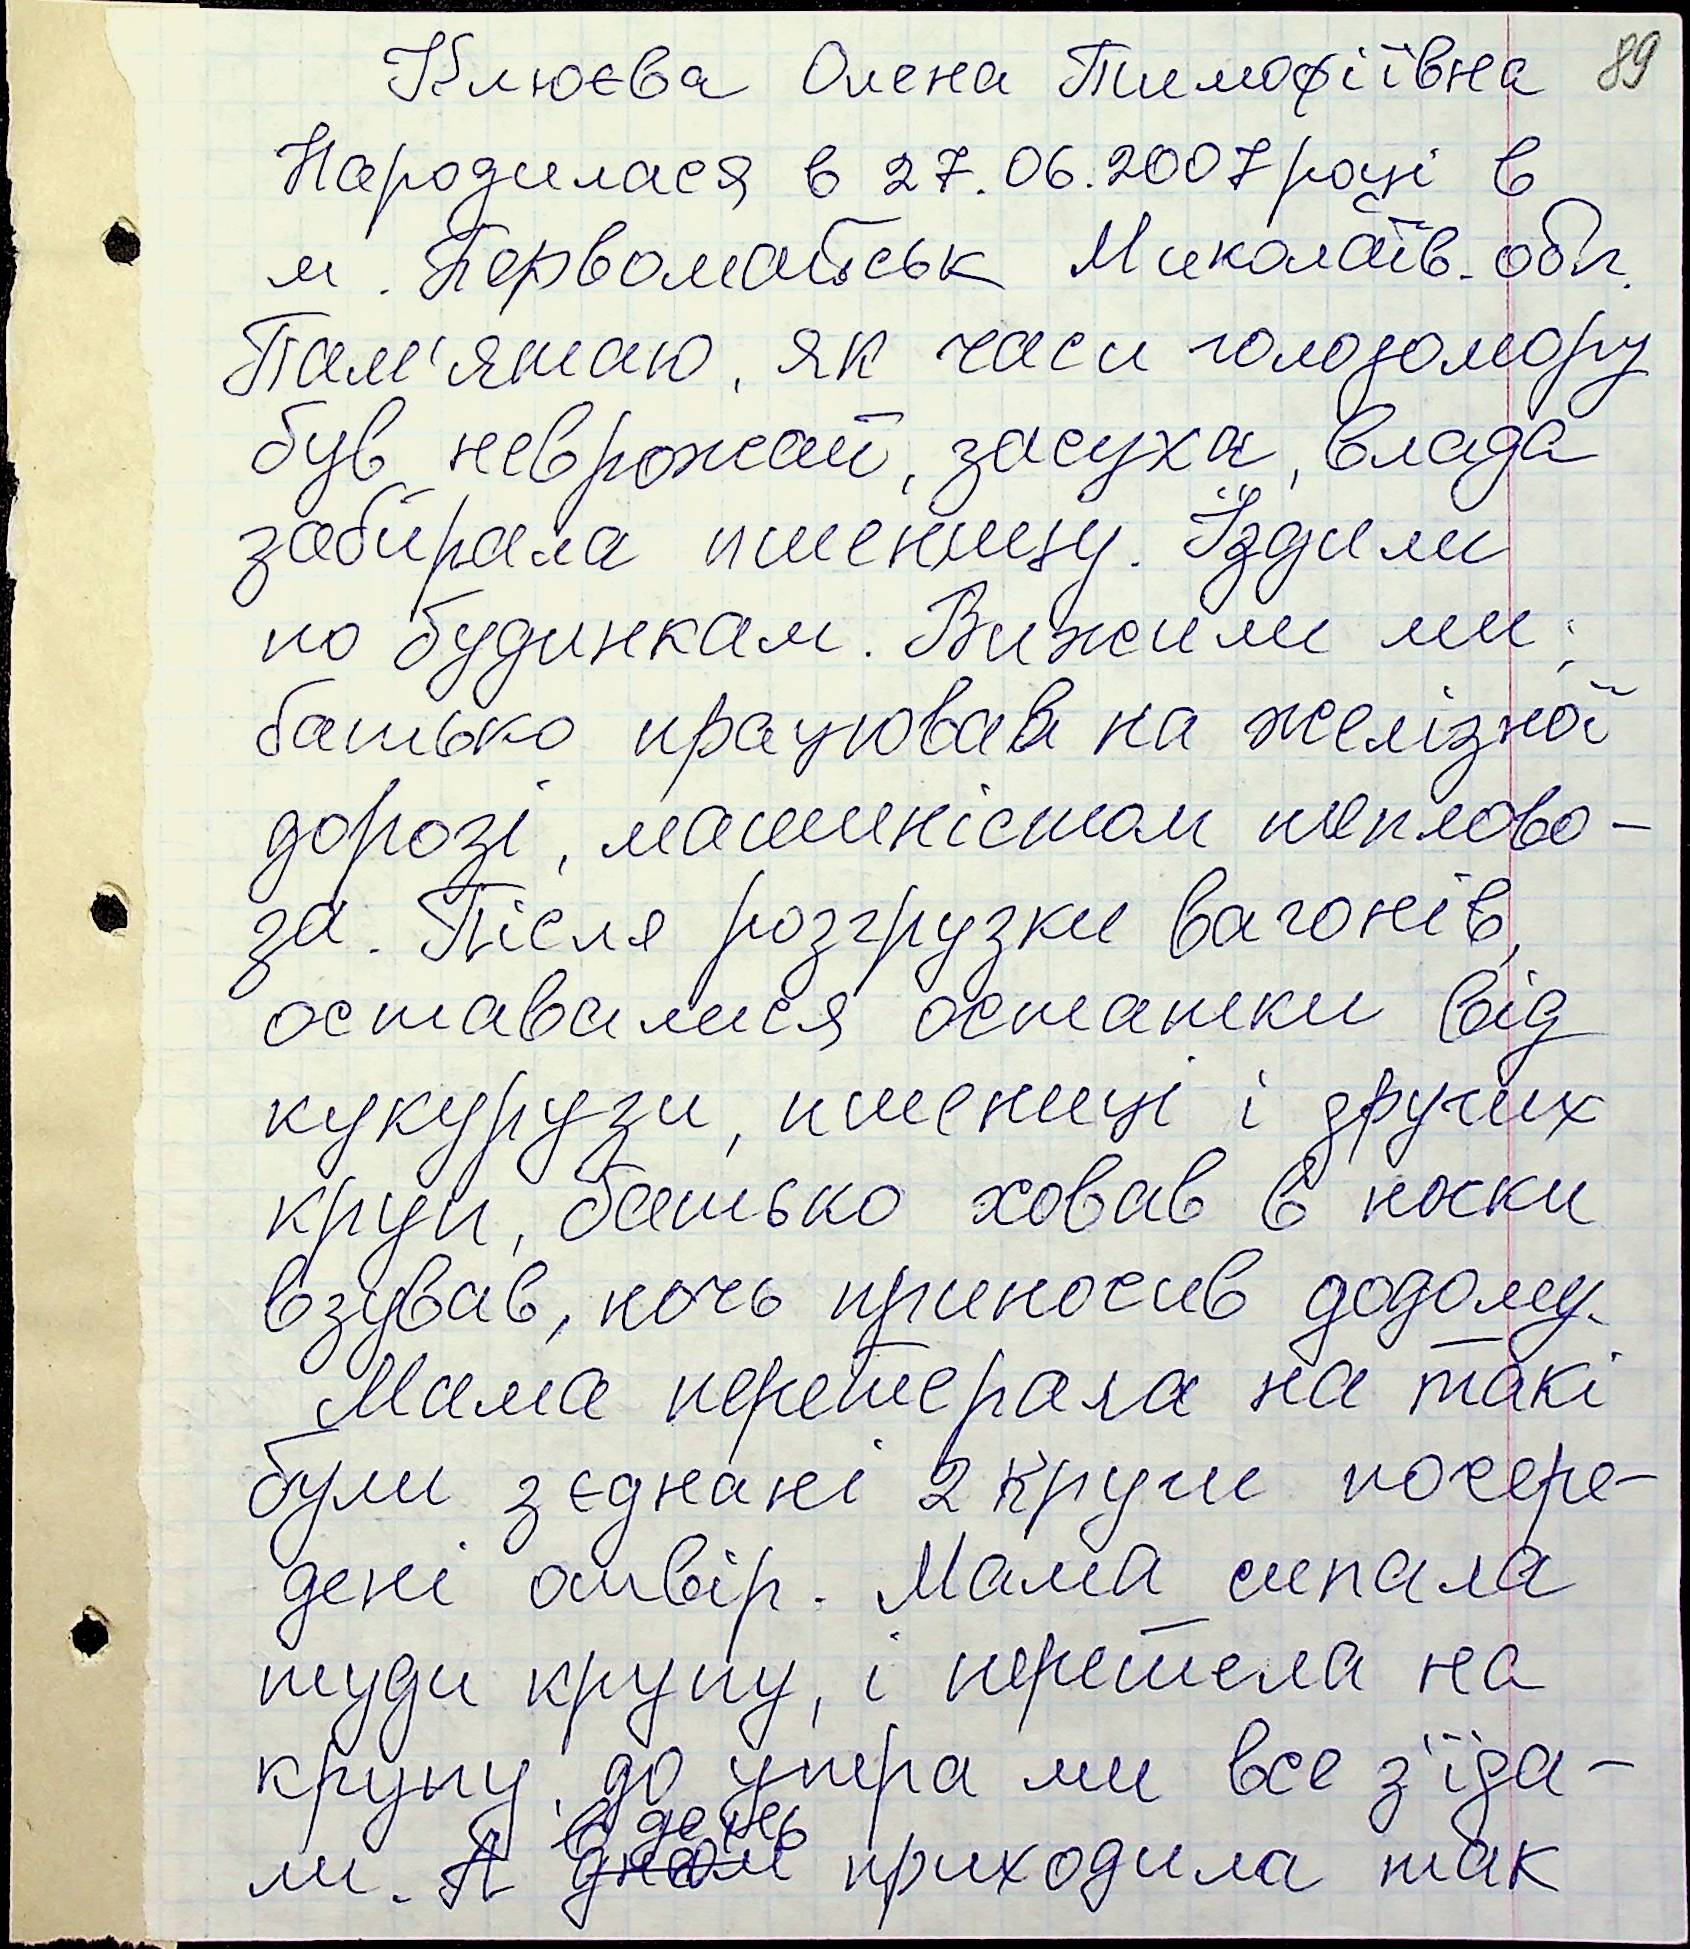 Клюєва Олена Тимофіївна 89
Народилася в 27.06.2007 році в
м. Первомайськ Миколаїв. обл.
Пам'ятаю, як часи голодомору
був неврожай, засуха, влада
забирала пшеницу. Їздили
по будинкам. Вижили ми;
батько працював на желізної
дорозі, машиністом теплово-
за. Після розгрузки вагонів,
оставалися остатки від
кукурузи, пшениці і других
круп, батько ховав в носки
взував, ночь приносив додому.
Мама перетерала на такі
були зєднані 2 круги посере-
дені отвір. Мама сипала
туди крупу, і перетела на
крупу, до утра ми все з'їда-
ли. А в день приходила так